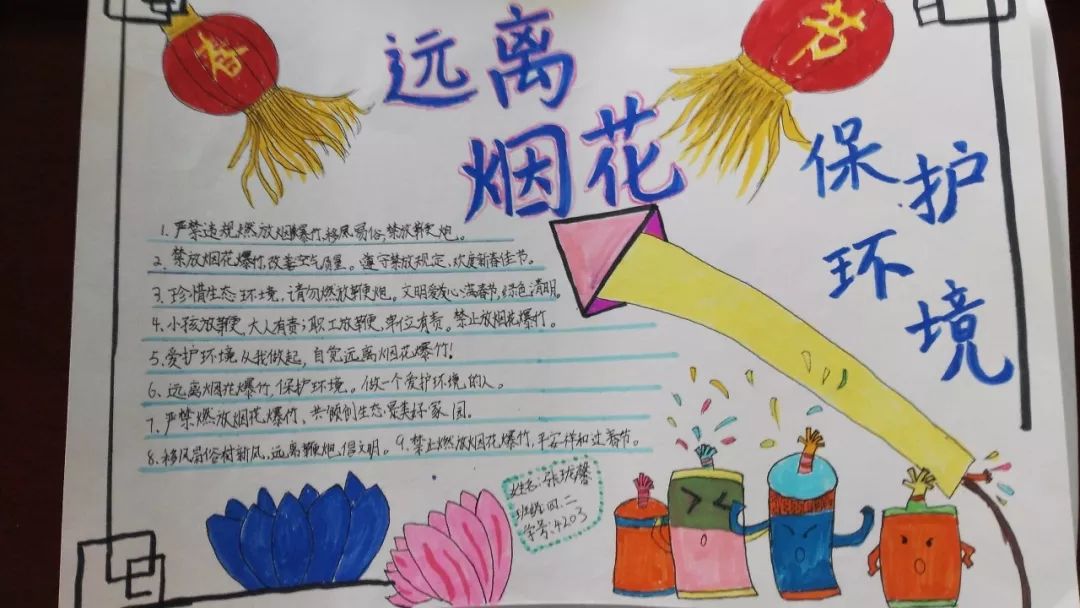 春
远离
烟花
保护
环境
1、严禁违规燃放烟爆竹、移风易俗,禁放鞭炮。
2、禁放烟花爆竹,改善空气质量。遵守禁放规定、欢度新春佳节。
3、珍惜生态环境,请勿燃放鞭炮。文明爱心满春节,绿色清明。
4、小孩放鞭,大人有责;职工放鞭,单位有责。禁止放烟花爆竹。
5、爱护环境从我做起,自觉远离烟花爆竹!
6、远离烟花爆竹,保护环境。做一个爱护环境的人。
7、严禁燃放烟花爆竹、共倾创生态美好家园。
8、移风易俗树新风,远离鞭炮倡文明。9、禁止燃放烟花爆竹,平安祥和过春节。
姓名:张珑馨
班级:四、二
学号:4203